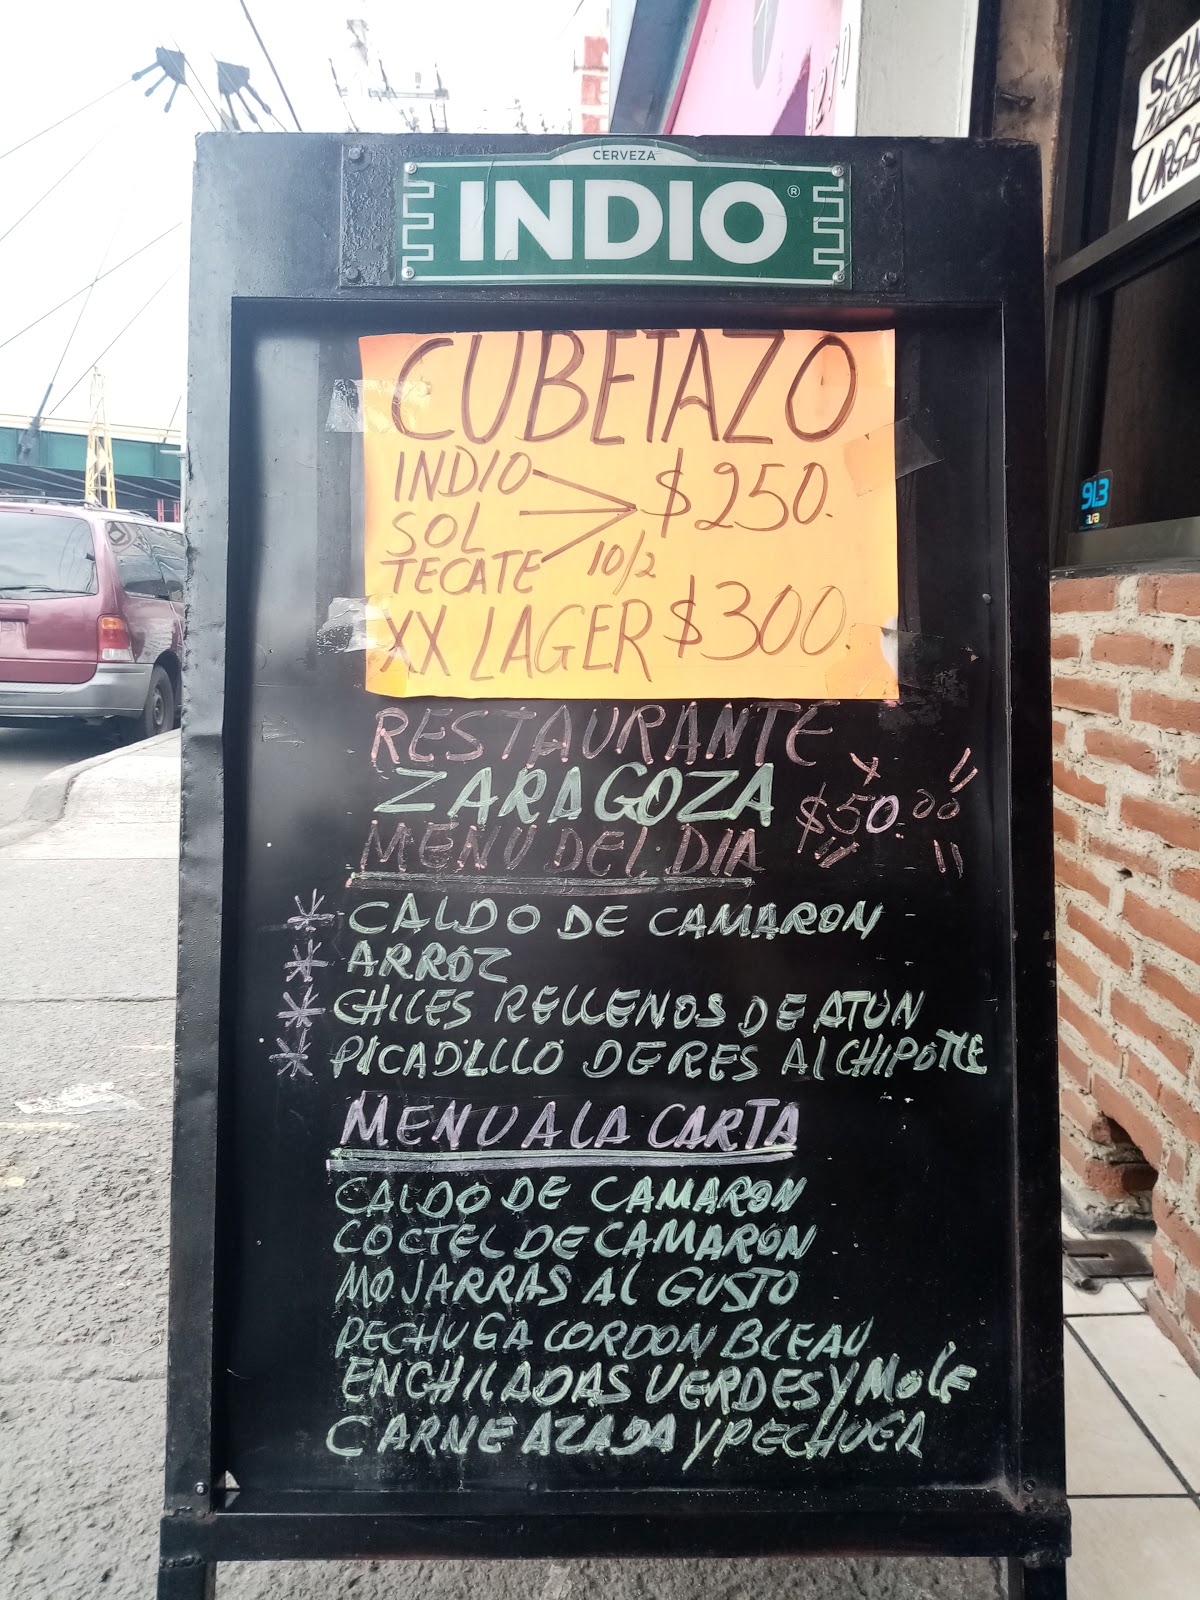 CERVEZA
INDIO®
CUBETAZO
INDIO
SOL
TECATE
$250.
10/2
XX LAGER $300.
RESTAURANTE
ZARAGOZA
MENU DEL DIA
$50.00
* CALDO DE CAMARON
* ARROZ
* CHILES RELLENOS DE ATUN
* PICADILLO DE RES AL CHIPOTLE
MENU A LA CARTA
CALDO DE CAMARON
COCTEL DE CAMARON
MOJARRAS AL GUSTO
PECHUGA CORDON BLEAU
ENCHILADAS VERDES Y MOLE
CARNE AZADA Y PECHUGA
91.3